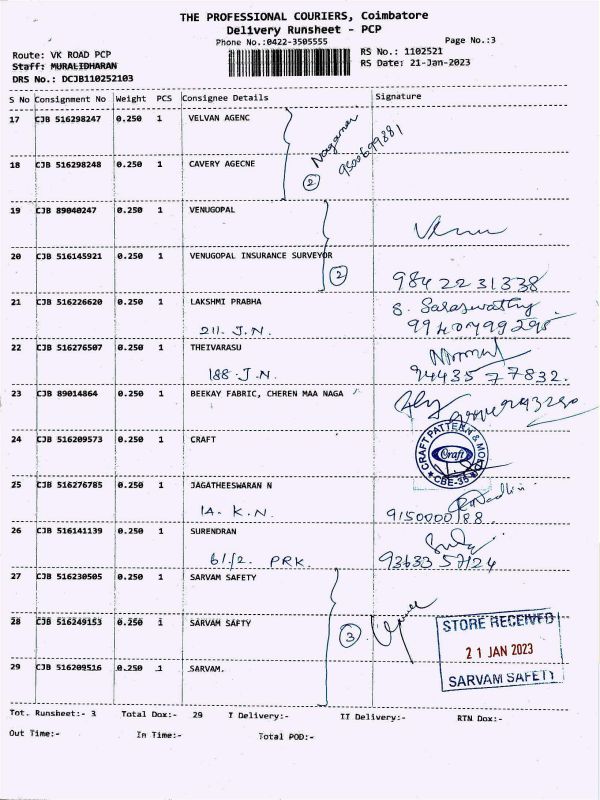 THE PROFESSIONAL COURIERS, Coimbatore
Delivery Runsheet - PCP
Phone No.:0422-3505555 Page No.:3
Route: VK ROAD PCP RS No.: 1102521
Staff: MURALIDHARAN RS Date: 21-Jan-2023
DRS No.: DCJB110252103
S No Consignment No Weight PCS Consignee Details Signature
17 CJB 516298247 0.250 1 VELVAN AGENC
9500699881
18 CJB 516298248 0.250 1 CAVERY AGECNE
2
19 CJB 89040247 0.250 1 VENUGOPAL
20 CJB 516145921 0.250 1 VENUGOPAL INSURANCE SURVEYOR
2 98422 31338
21 CJB 516226620 0.250 1 LAKSHMI PRABHA S. Saraswathy
211. J.N. 9940799295
22 CJB 516276507 0.250 1 THEIVARASU
188 J.N. 94435 77832.
23 CJB 89014864 0.250 1 BEEKAY FABRIC, CHEREN MAA NAGA
24 CJB 516209573 0.250 1 CRAFT
CRAFT PATTERN &
Craft
CBE-35
25 CJB 516276785 0.250 1 JAGATHEESWARAN N
1A. K.N. 9150000188
26 CJB 516141139 0.250 1 SURENDRAN
61/2. PRK. 93633 57124
27 CJB 516230505 0.250 1 SARVAM SAFETY
28 CJB 516249153 0.250 1 SARVAM SAFTY
3
STORE RECEIVED
21 JAN 2023
SARVAM SAFETY
29 CJB 516209516 0.250 1 SARVAM.
Tot. Runsheet:- 3 Total Dox:- 29 I Delivery:- II Delivery:- RTN Dox:-
Out Time:- In Time:- Total POD:-